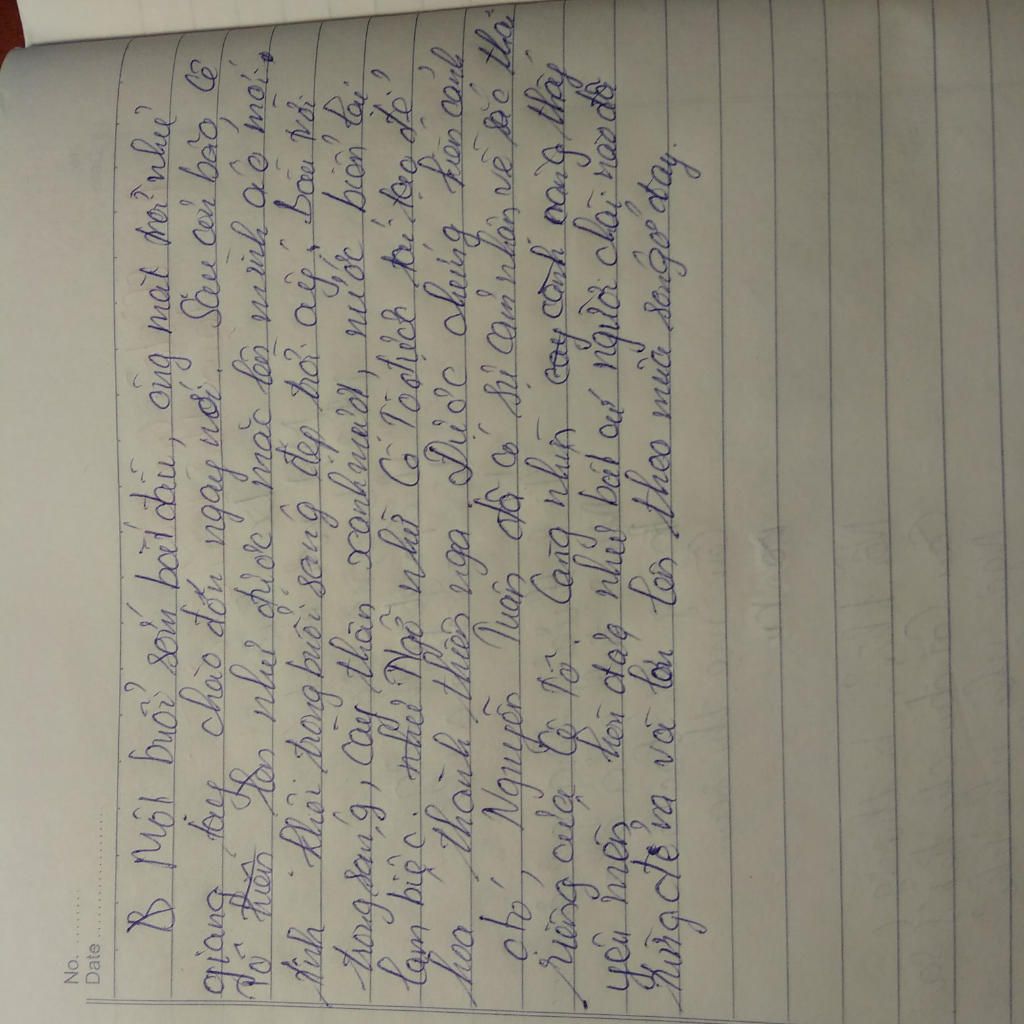 No. ........
Date ....................
Một buổi sớm bắt đầu, ông mặt trời như
giang tay chào đón ngày mới. Sau cơn bão Cô
Tô hiện lên như được mặc lên mình áo mới
tinh khôi trong buổi sáng đẹp trời ấy. Bầu trời
trong sáng, cây thân xanh mượt, nước biển lại
lam biếc. Ngỡ như Cô Tô thích trí tạo để
hoá thành thiên nga. Được chứng kiến cảnh
đó, Nguyễn Tuân đã có sự cảm nhận về sắc thái
riêng của Cô Tô. Càng nhìn càng thấy
yêu mến hòn đảo như bất cứ người chài nào đã
từng đẻ ra và lớn lên theo mùa sóng ở đây.